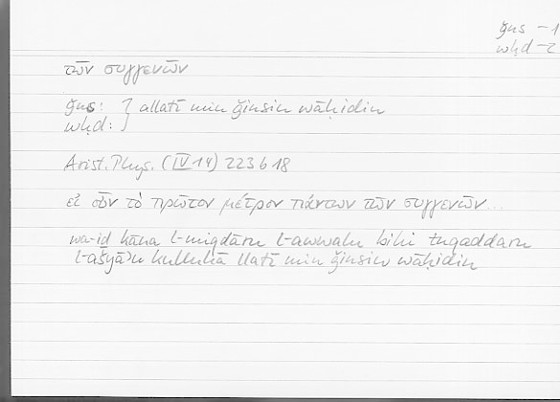 ǧns – 1
wḥd – 2
τῶν συγγενῶν
ǧns: } allatī min ǧinsin wāḥidin
wḥd: }
Arist. Phys. (IV 14) 223 b 18
εἰ οὖν τὸ πρῶτον μέτρον πάντων τῶν συγγενῶν...
wa-iḏ kāna l-miqdāru l-awwalu bihī tuqaddaru
l-ašyāʾu kulluhā llatī min ǧinsin wāḥidin